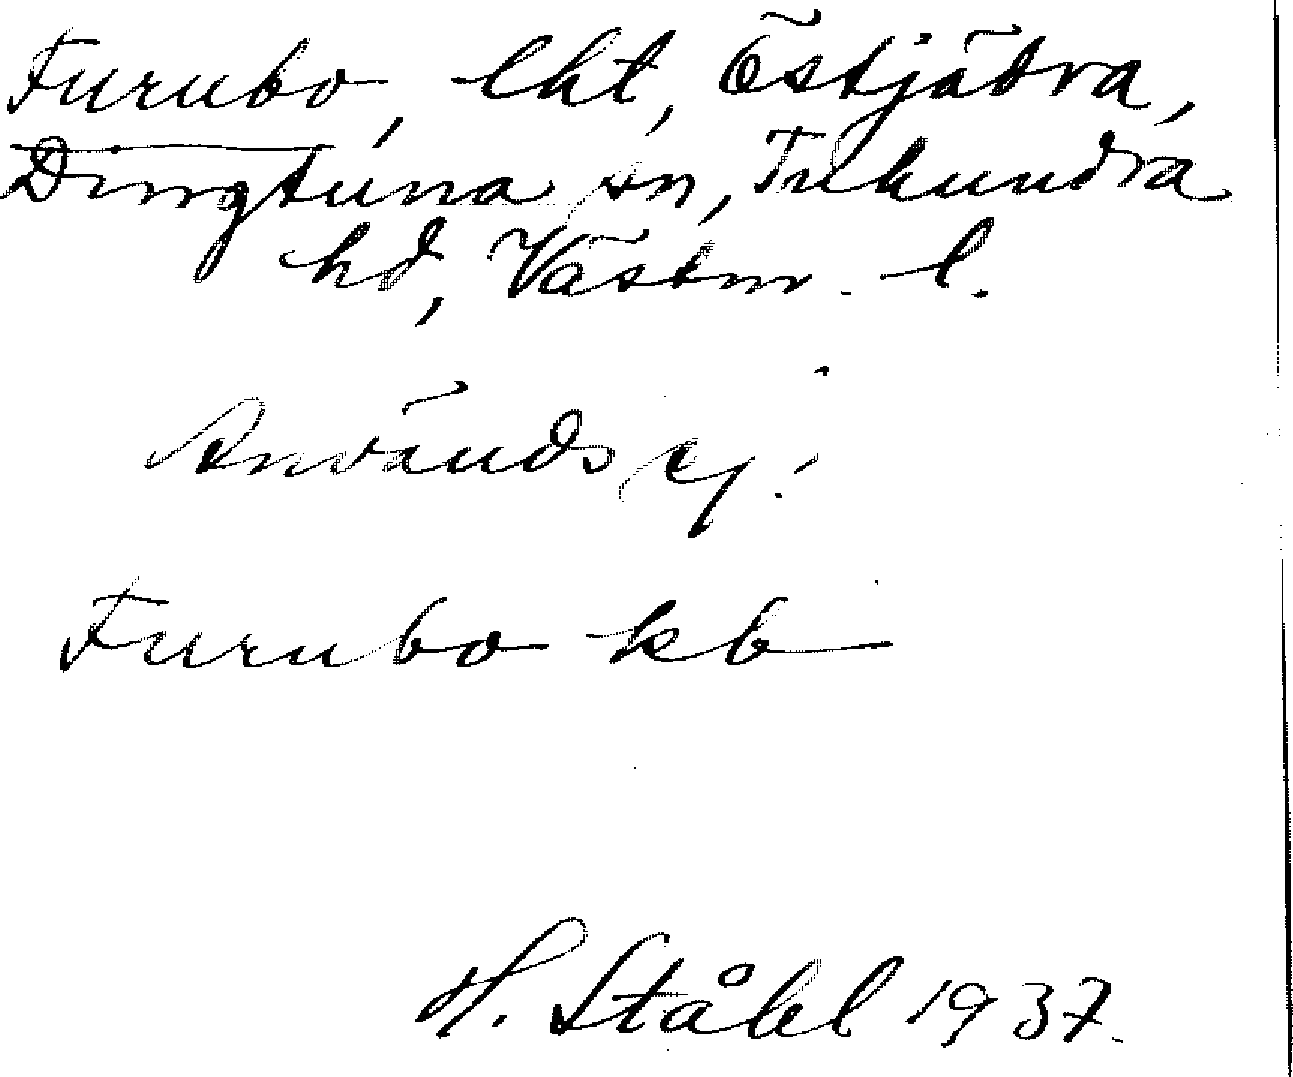 Furubo, lht, Östjädra,
Dingtuna sn, Tuhundra
hd, Västm. l.
Används ej.
Furubo kb
H. Ståhl 1937.